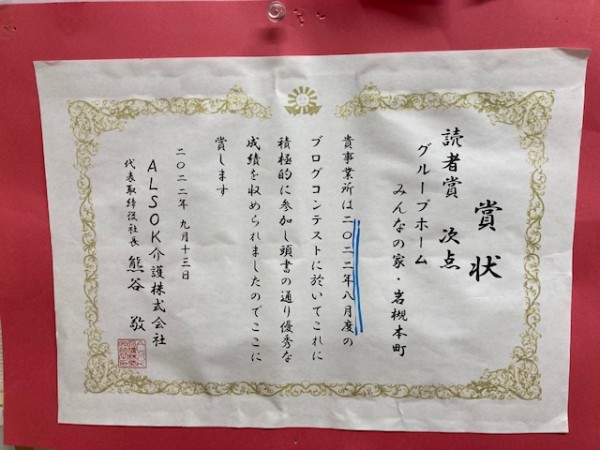 賞状
読者賞 次点
グループホーム
みんなの家・岩槻本町
貴事業所は二〇二二年八月度の
ブログコンテストに於いてこれに
積極的に参加し頭書の通り優秀な
成績を収められましたのでここに
賞します
二〇二二年 九月十三日
ALSOK介護株式会社
代表取締役社長 熊谷 敬